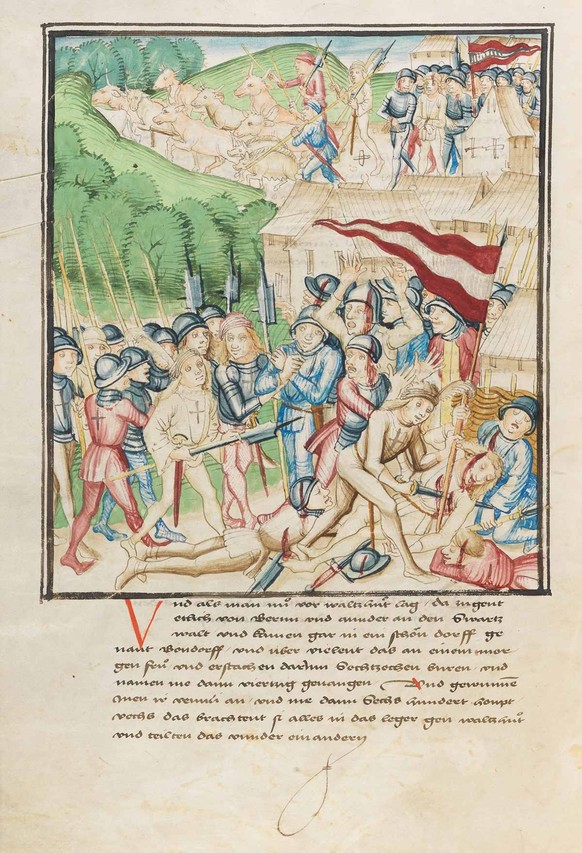 Vnd als man nu vor waltzhut lag da zugent
etlich von Bernn vnd ander an den Swartz
walt vnd kamen gar in ein schön dorff ge
nant Bondorff vnd über vielent das an einem mor
gen fru vnd erstachen darinn Sechtzechen buren vnd
namen me dann viertzig gefangen Vnd gewunnē
men ir vennli an vnd me dann Sechs hundert houpt
vechs das brachtent si alles in das leger gen waltzhut
vnd teilten das vnder einandern